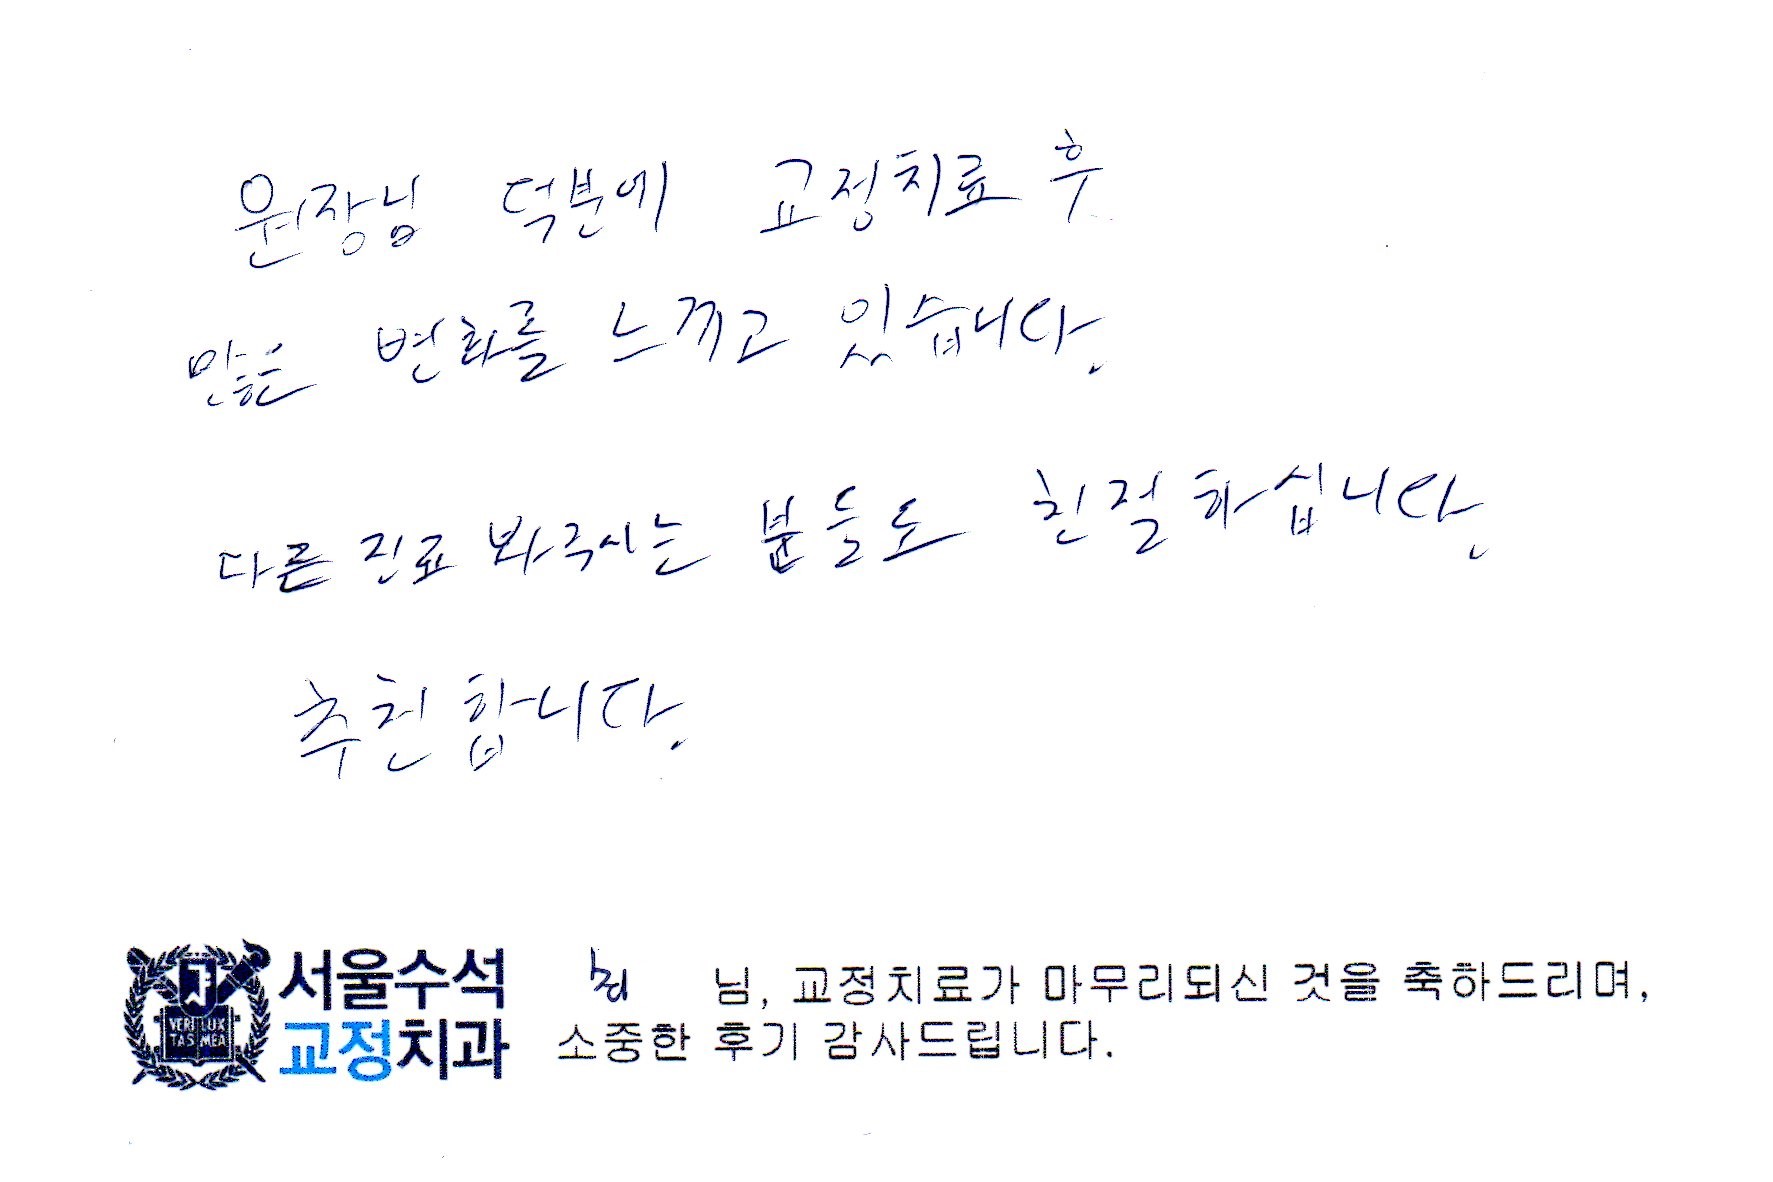 원장님 덕분에 교정치료 후
많은 변화를 느끼고 있습니다.
다른 진료 봐주시는 분들도 친절하십니다.
추천합니다.
서울수석
교정치과
VERI LUX
TAS MEA
최 님, 교정치료가 마무리되신 것을 축하드리며,
소중한 후기 감사드립니다.